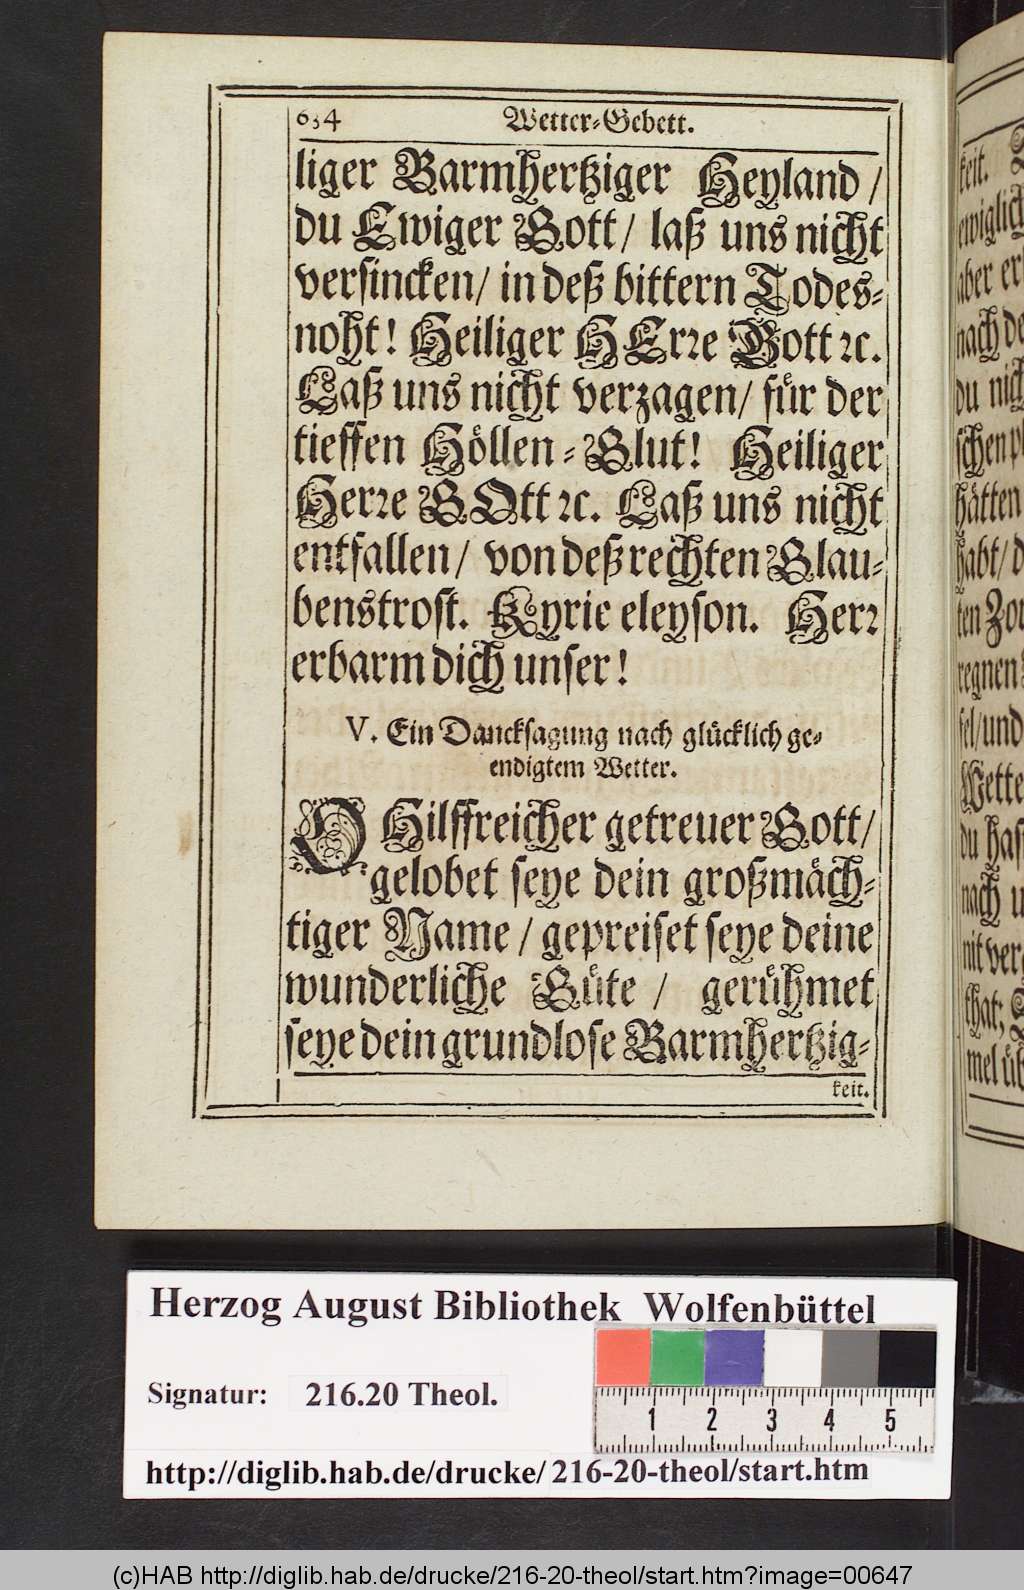 634 Wetter-Gebett.
liger Barmhertziger Heyland /
du Ewiger Gott / laß uns nicht
versincken / in deß bittern Todes-
noht! Heiliger HErre Gott ꝛc.
Laß uns nicht verzagen / für der
tieffen Höllen-Glut! Heiliger
Herre GOtt ꝛc. Laß uns nicht
entfallen / von deß rechten Glau-
benstrost. Kyrie eleyson. Herr
erbarm dich unser!
V. Ein Dancksagung nach glücklich ge-
endigtem Wetter.
O Hilffreicher getreuer Gott /
gelobet seye dein großmäch-
tiger Name / gepreiset seye deine
wunderliche Güte / gerühmet
seye dein grundlose Barmhertzig-
keit.
keit.
ewiglich
aber
nach
du nich
schen
hätten
habt /
ten
regnen
fel / und
Wette
du has
nach
nit ver
that;
mel üb
Herzog August Bibliothek Wolfenbüttel
Signatur: 216.20 Theol.
1 2 3 4 5
http://diglib.hab.de/drucke/216-20-theol/start.htm
(c)HAB http://diglib.hab.de/drucke/216-20-theol/start.htm?image=00647